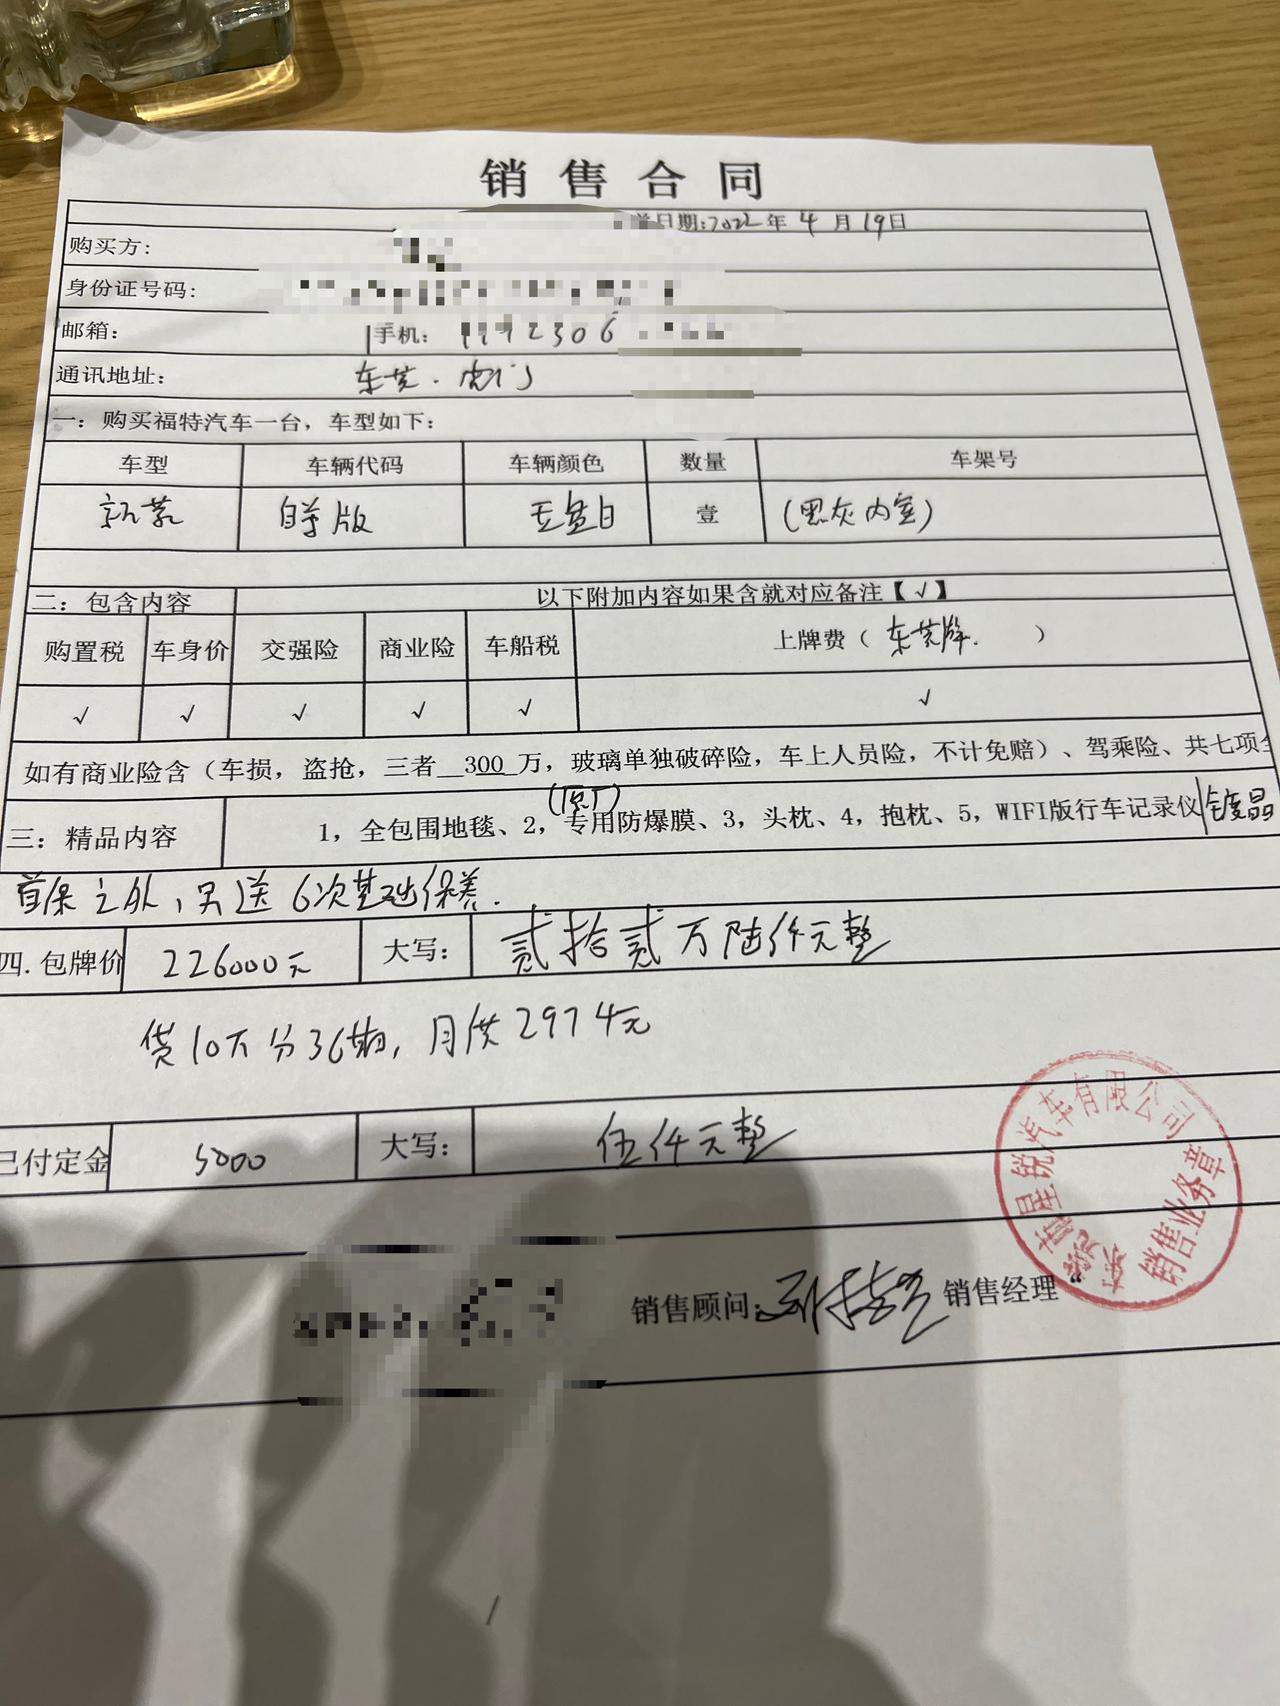 销售合同
日期:2022年4月19日
购买方:
身份证号码:
邮箱: 手机: 2306
通讯地址: 东莞.虎门
一: 购买福特汽车一台, 车型如下:
车型 车辆代码 车辆颜色 数量 车架号
尊版 白 壹 (黑灰内室)
二: 包含内容 以下附加内容如果含就对应备注【√】
购置税 车身价 交强险 商业险 车船税 上牌费( 东莞牌. )
√ √ √ √ √ √
如有商业险含(车损, 盗抢, 三者__300_万, 玻璃单独破碎险, 车上人员险, 不计免赔)、驾乘险、共七项全
(原厂)
三: 精品内容 1, 全包围地毯、2, 专用防爆膜、3, 头枕、4, 抱枕、5, WIFI版行车记录仪 镀晶
首保之外, 另送6次基础保养.
四. 包牌价 226000元 大写: 贰拾贰万陆仟元整
贷10万分36期, 月供2974元
已付定金 5000 大写: 伍仟元整
销售顾问: 销售经理
星锐汽车有限公司
销售业务章